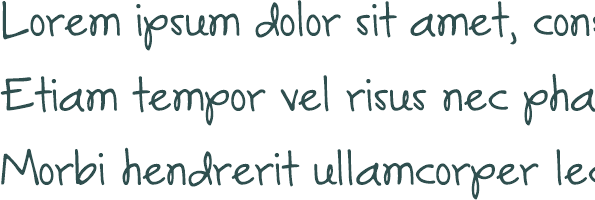 Lorem ipsum dolor sit amet, cons
Etiam tempor vel risus nec pha
Morbi hendrerit ullamcorper leo